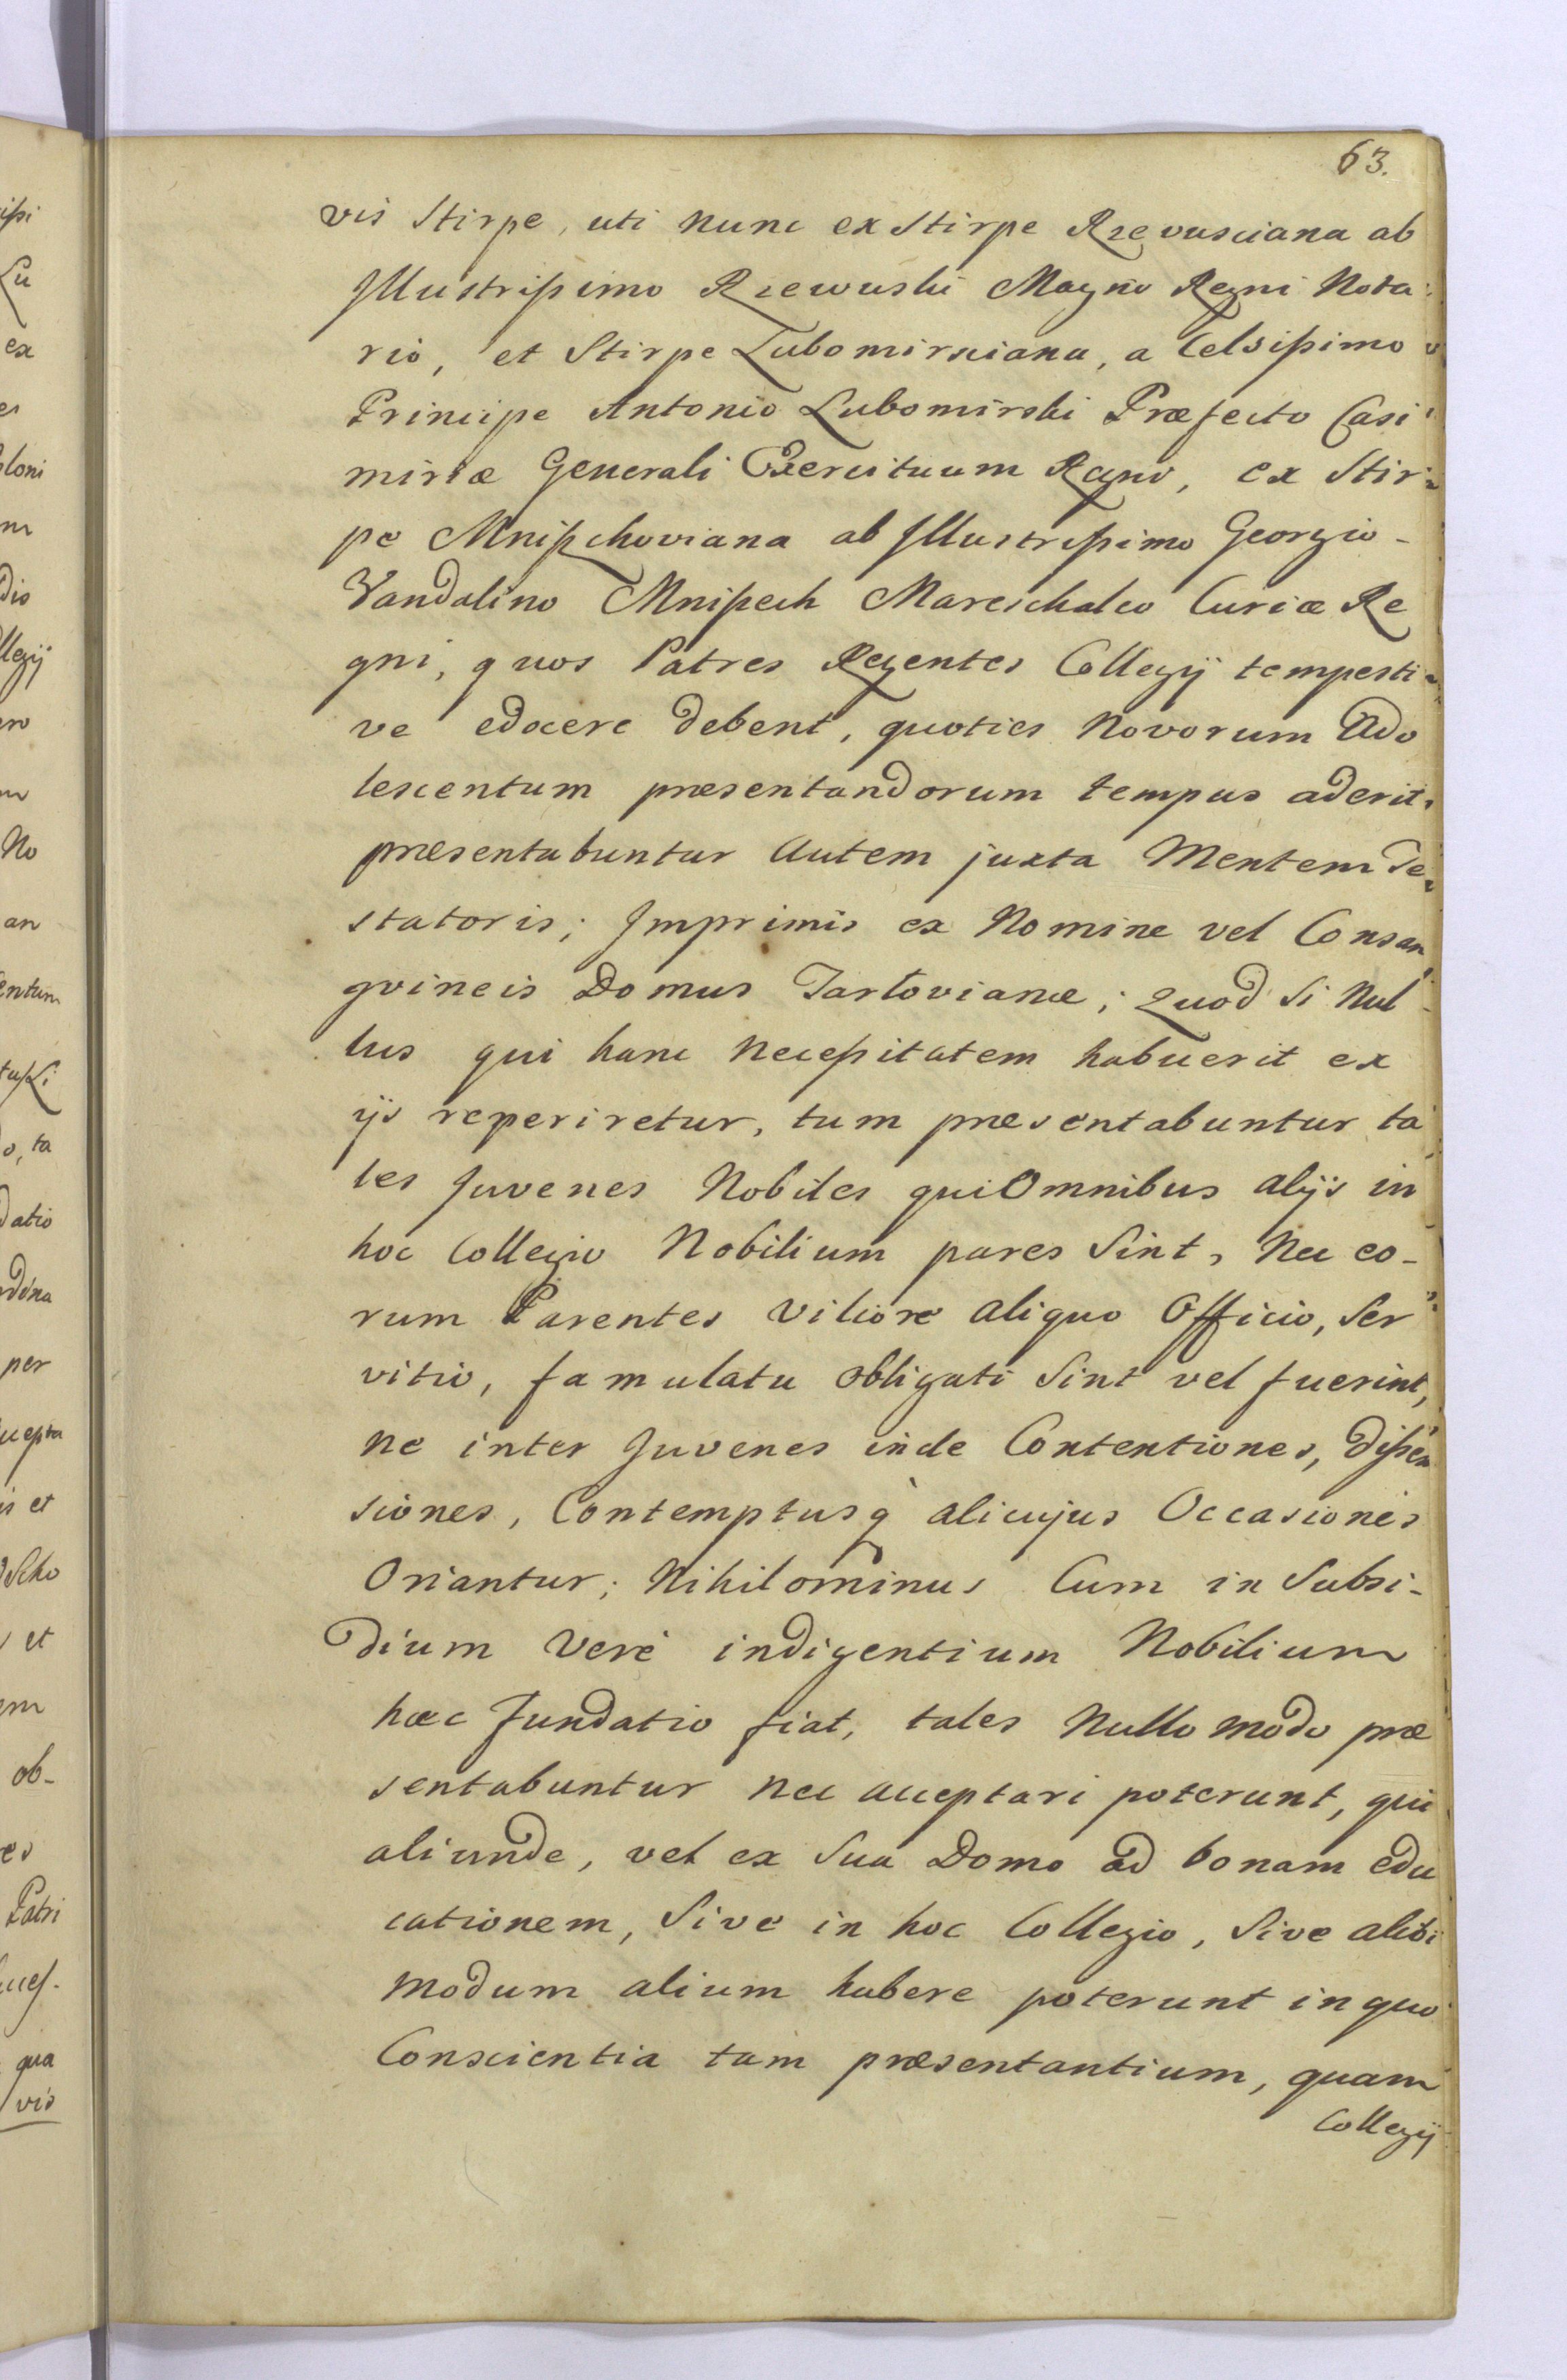 63.
vis Stirpe, uti nunc ex Stirpe Rzevusciana ab
Illustrissimo Rzewuski Magno Regni Nota-
rio, et Stirpe Lubomirsciana, a Celsissimo
Principe Antonio Lubomirski Præfecto Casi-
miriæ Generali Exercituum Regni, ex Stir-
pe Mnischoviana ab Illustrissimo Georgio-
Vandalino Mniszech Mareschalco Curiæ Re
gni, quos Patres Regentes Collegij tempesti-
ve edocere debent, quoties Novorum Ado
lescentum præsentandorum tempus aderit.
præsentabuntur autem juxta Mentem Te-
statoris; Imprimis ex Nomine vel Consan-
gvineis Domus Tarloviane; Quod si Nul-
lus qui hanc Necessitatem habuerit ex
ijs reperiretur, tum præsentabuntur ta-
les Juvenes Nobiles qui Omnibus alijs in
hoc Collegio Nobilium pares Sint, Nec eo-
rum Parentes viliore aliquo Officio, Ser-
vitio, famulatu obligati Sint vel fuerint,
ne inter Juvenes inde Contentiones, dissen
siones, Contemptusq alicujus Occasiones
Oriantur; Nihilominus Cum in Subsi-
dium verè indigentium Nobilium
hæc Fundatio fiat, tales Nullo modo præ
sentabuntur nec acceptari poterunt, qui
aliunde, vel ex Sua Domo ad bonam edu
cationem, Sive in hoc Collegio, Sive alibi
modum alium habere poterunt in quo
Conscientia tam præsentantium, quam
Collegij
ipsi
Lu
ex
es
loni
m
dis
llegij
No
an
entum
o, ta
datio
rdina
per
is et
Scho
et
em
ob-
es
Patri
qua
vis